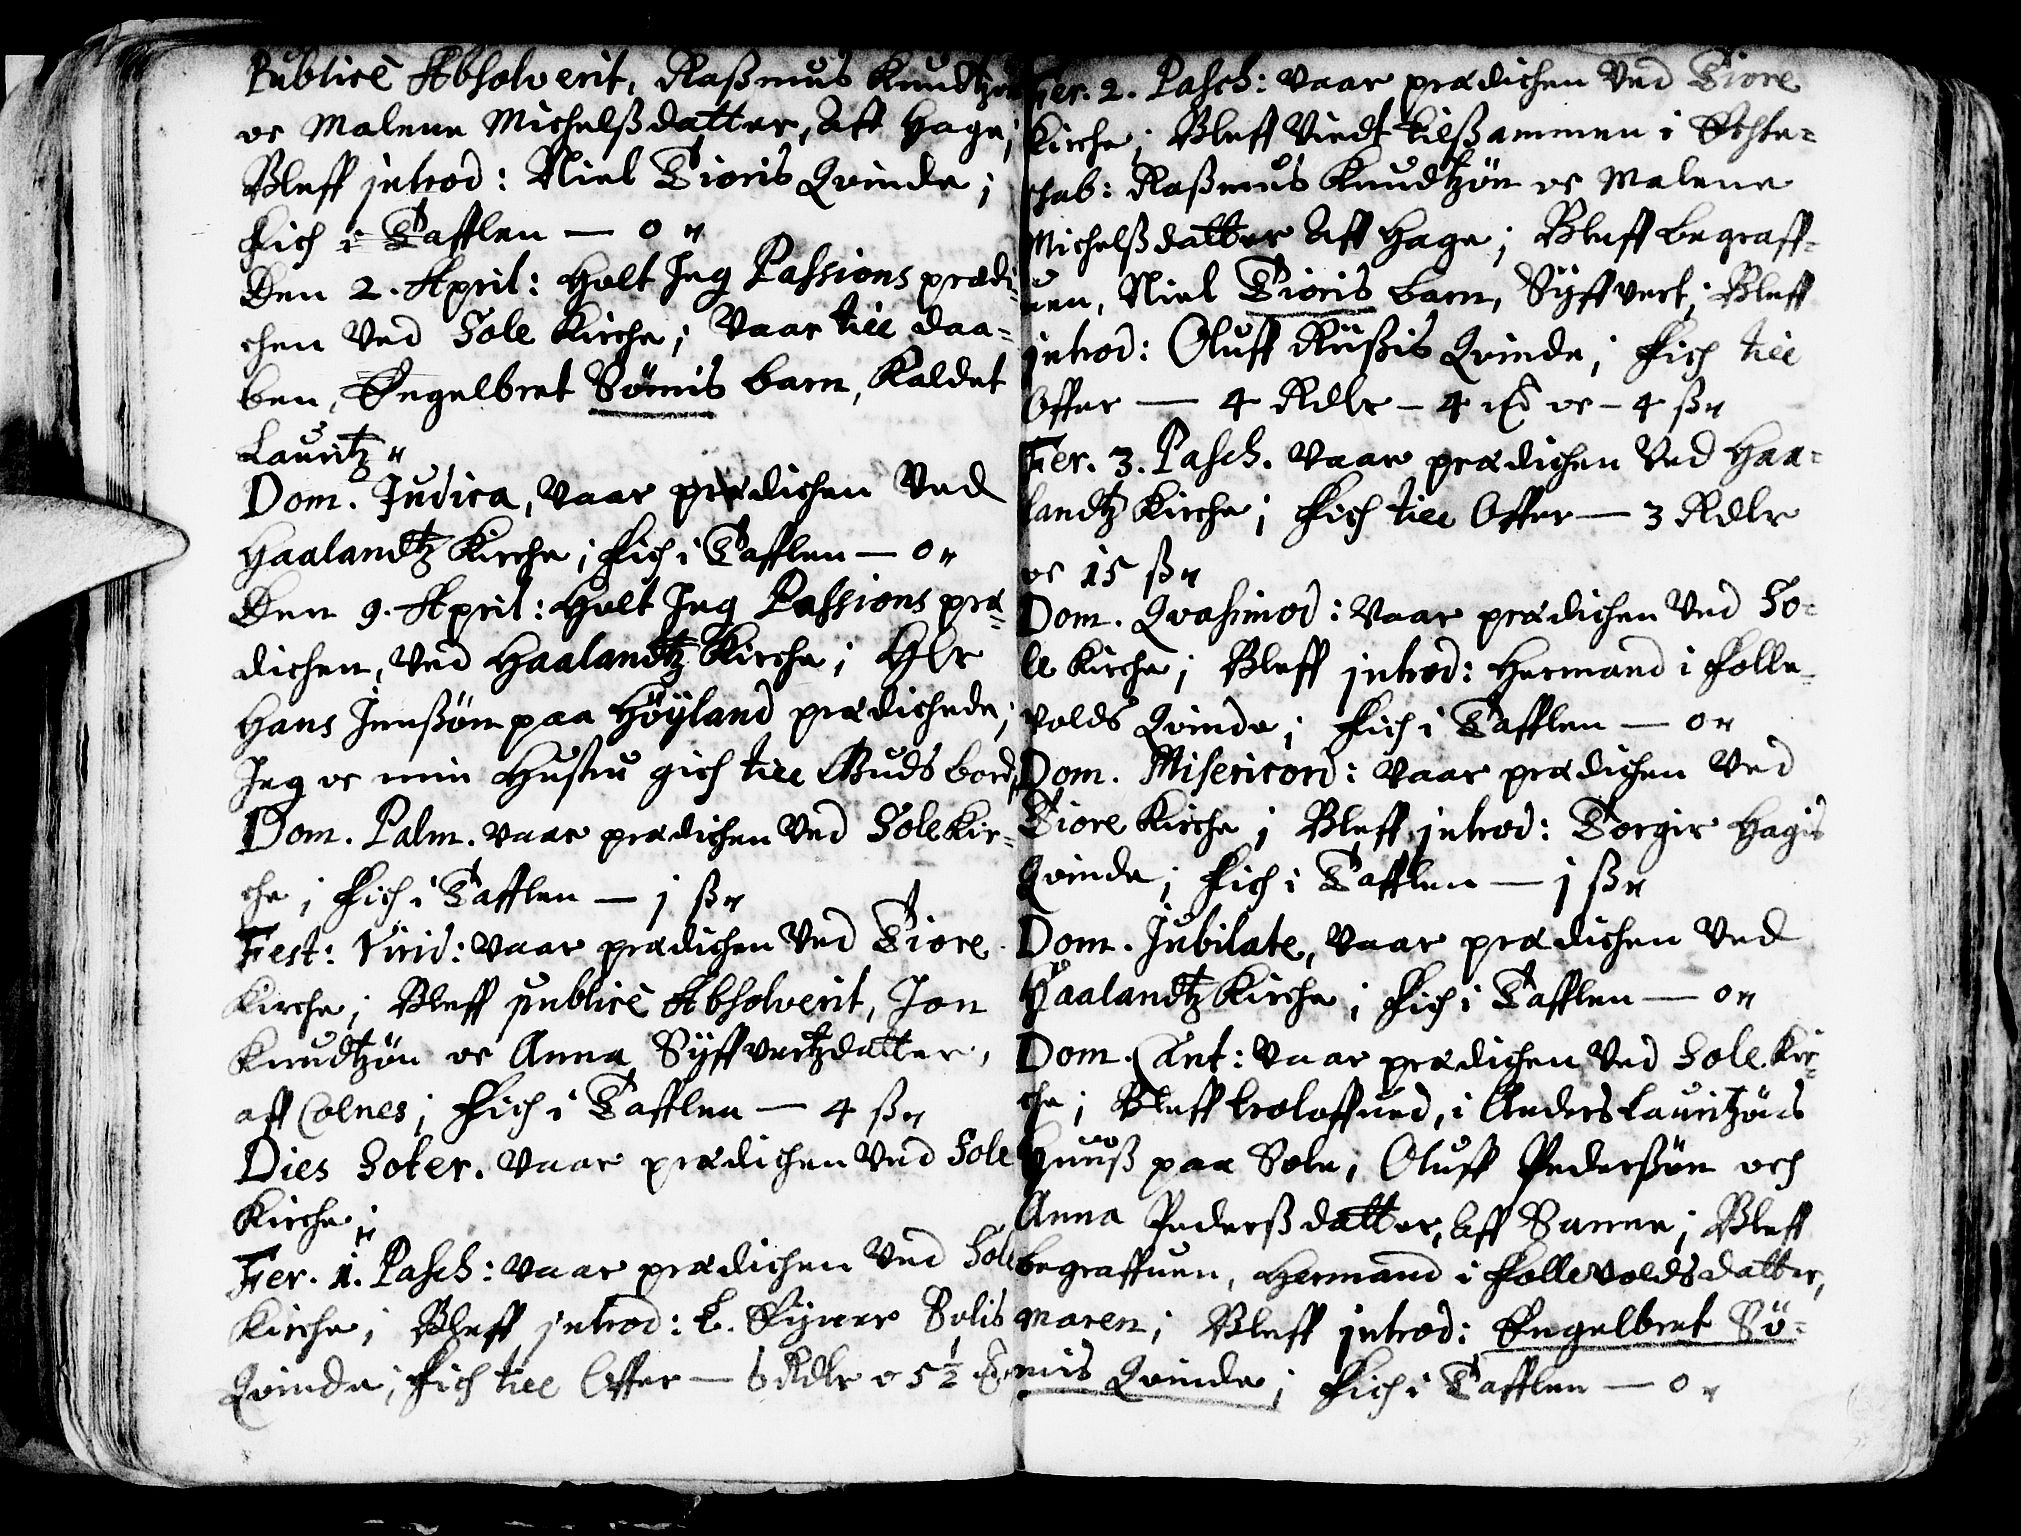 Publicè Absolverit, Raßmus Knudtzøn
oc Malene Michelßdatter, Aff Hage;
Bleff introd: Niel Tioris Qvinde;
Fich i Tafflen — 0 "
Den 2. April: Holt Jeg Passions prædi-
chen Ved Sole Kirche; Vaar till daa-
ben, Engelbret Sömis barn, Kaldet
Lauritz "
Dom. Judica, Vaar prædichen Ved
Haalandtz Kirche; Fich i Tafflen — 0 "
Den 9. April: Holt Jeg Passions præ-
dichen, Ved Haalandtz Kirche; Hlr
Hans Jenßøn paa Höyland prædichede;
Jeg oc min Hustru gich till Guds bord,
Dom. Palm. vaar prædichen Ved Sole Kir-
che; Fich i Tafflen — j ß "
Fest: Virid: vaar prædichen Ved Tiore
Kirche; Bleff publicè Absolverit, Jon
Knudtzøn oc Anna Syffvertzdatter,
aff Colnes; Fich i Tafflen — 4 ß "
Dies Soter. Vaar prædichen Ved Sole
Kirche; "
Fer. 1. Pasch: vaar prædichen Ved Sole
Kirche; Bleff introd: L. Eyner Solis
Qvinde; Fich till Offer — 6 Rdlr oc 5 ½
Fer. 2. Pasch: Vaar prædichen Ved Tiore
Kirche; Bleff Viedt tilßammen i Echte-
schab: Raßmus Knudtzøn oc Malene
Michelßdatter Aff Hage; Bleff begraff-
uen, Niel Tioris barn, Syffvert; Bleff
introd: Oluff Rüßis Qvinde; Fich till
Offer — 4 Rdlr — 4 oc — 4 ß "
Fer. 3. Pasch. Vaar prædichen Ved Haa-
landtz Kirche; Fich till Offer — 3 Rdlr
oc 15 ß "
Dom. Qvasimod: Vaar prædichen Ved So-
le Kirche; Bleff introd: Hermand i Folle-
volds Qvinde; Fich i Tafflen — 0 "
Dom. Misericord: Vaar prædichen Ved
Tiore Kirche; Bleff introd: Torgir Hagis
Qvinde; Fich i Tafflen — j ß "
Dom. Jubilate, Vaar prædichen Ved
Haalandtz Kirche; Fich i Tafflen — 0 "
Dom. Cant: Vaar prædichen Ved Sole Kir-
che; Bleff troloffued, i Anders Lauritzøns
Huuß paa Sole, Oluff Pederßøn och
Anna Pederßdatter, Aff Sanne; Bleff
begraffuen, Hermand i Follevolds datter,
Maren; Bleff introd: Engelbret Sö-
mis Qvinde; Fich i Tafflen — 0 "